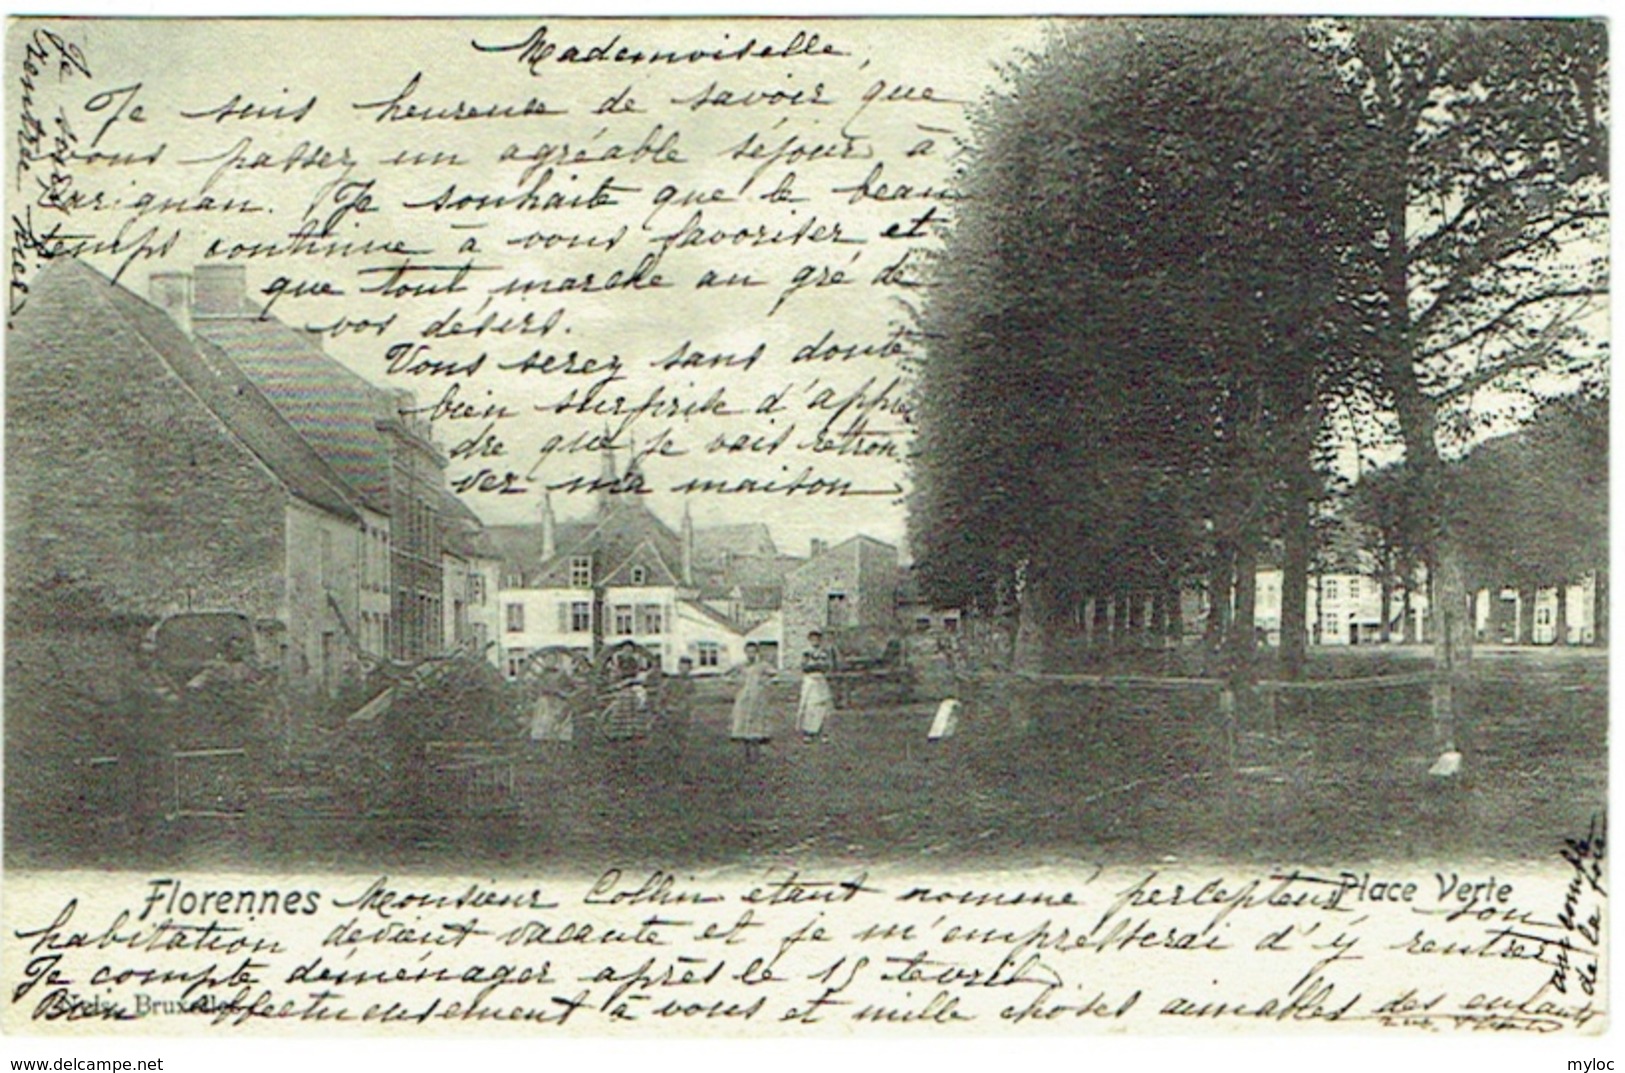 Mademoiselle,
Je suis heureuse de savoir que
vous passez un agréable séjour à
Carignan. Je souhaite que le beau
temps continue à vous favoriser et
que tout marche au gré de
vos désirs.
Vous serez sans doute
bien surprise d'appren
dre que je vais retrou
ver ma maison
Florennes
Place Verte
Monsieur Collin étant nommé percepteur son
habitation devient vacante et je m'empresserai d'y rentrer
Je compte déménager après le 15 Avril
Nels, Bruxelles
Bien affectueusement à vous et mille choses aimables des enfants
au comble
de la joie
Je
rentrée
delcampe.net
myloc